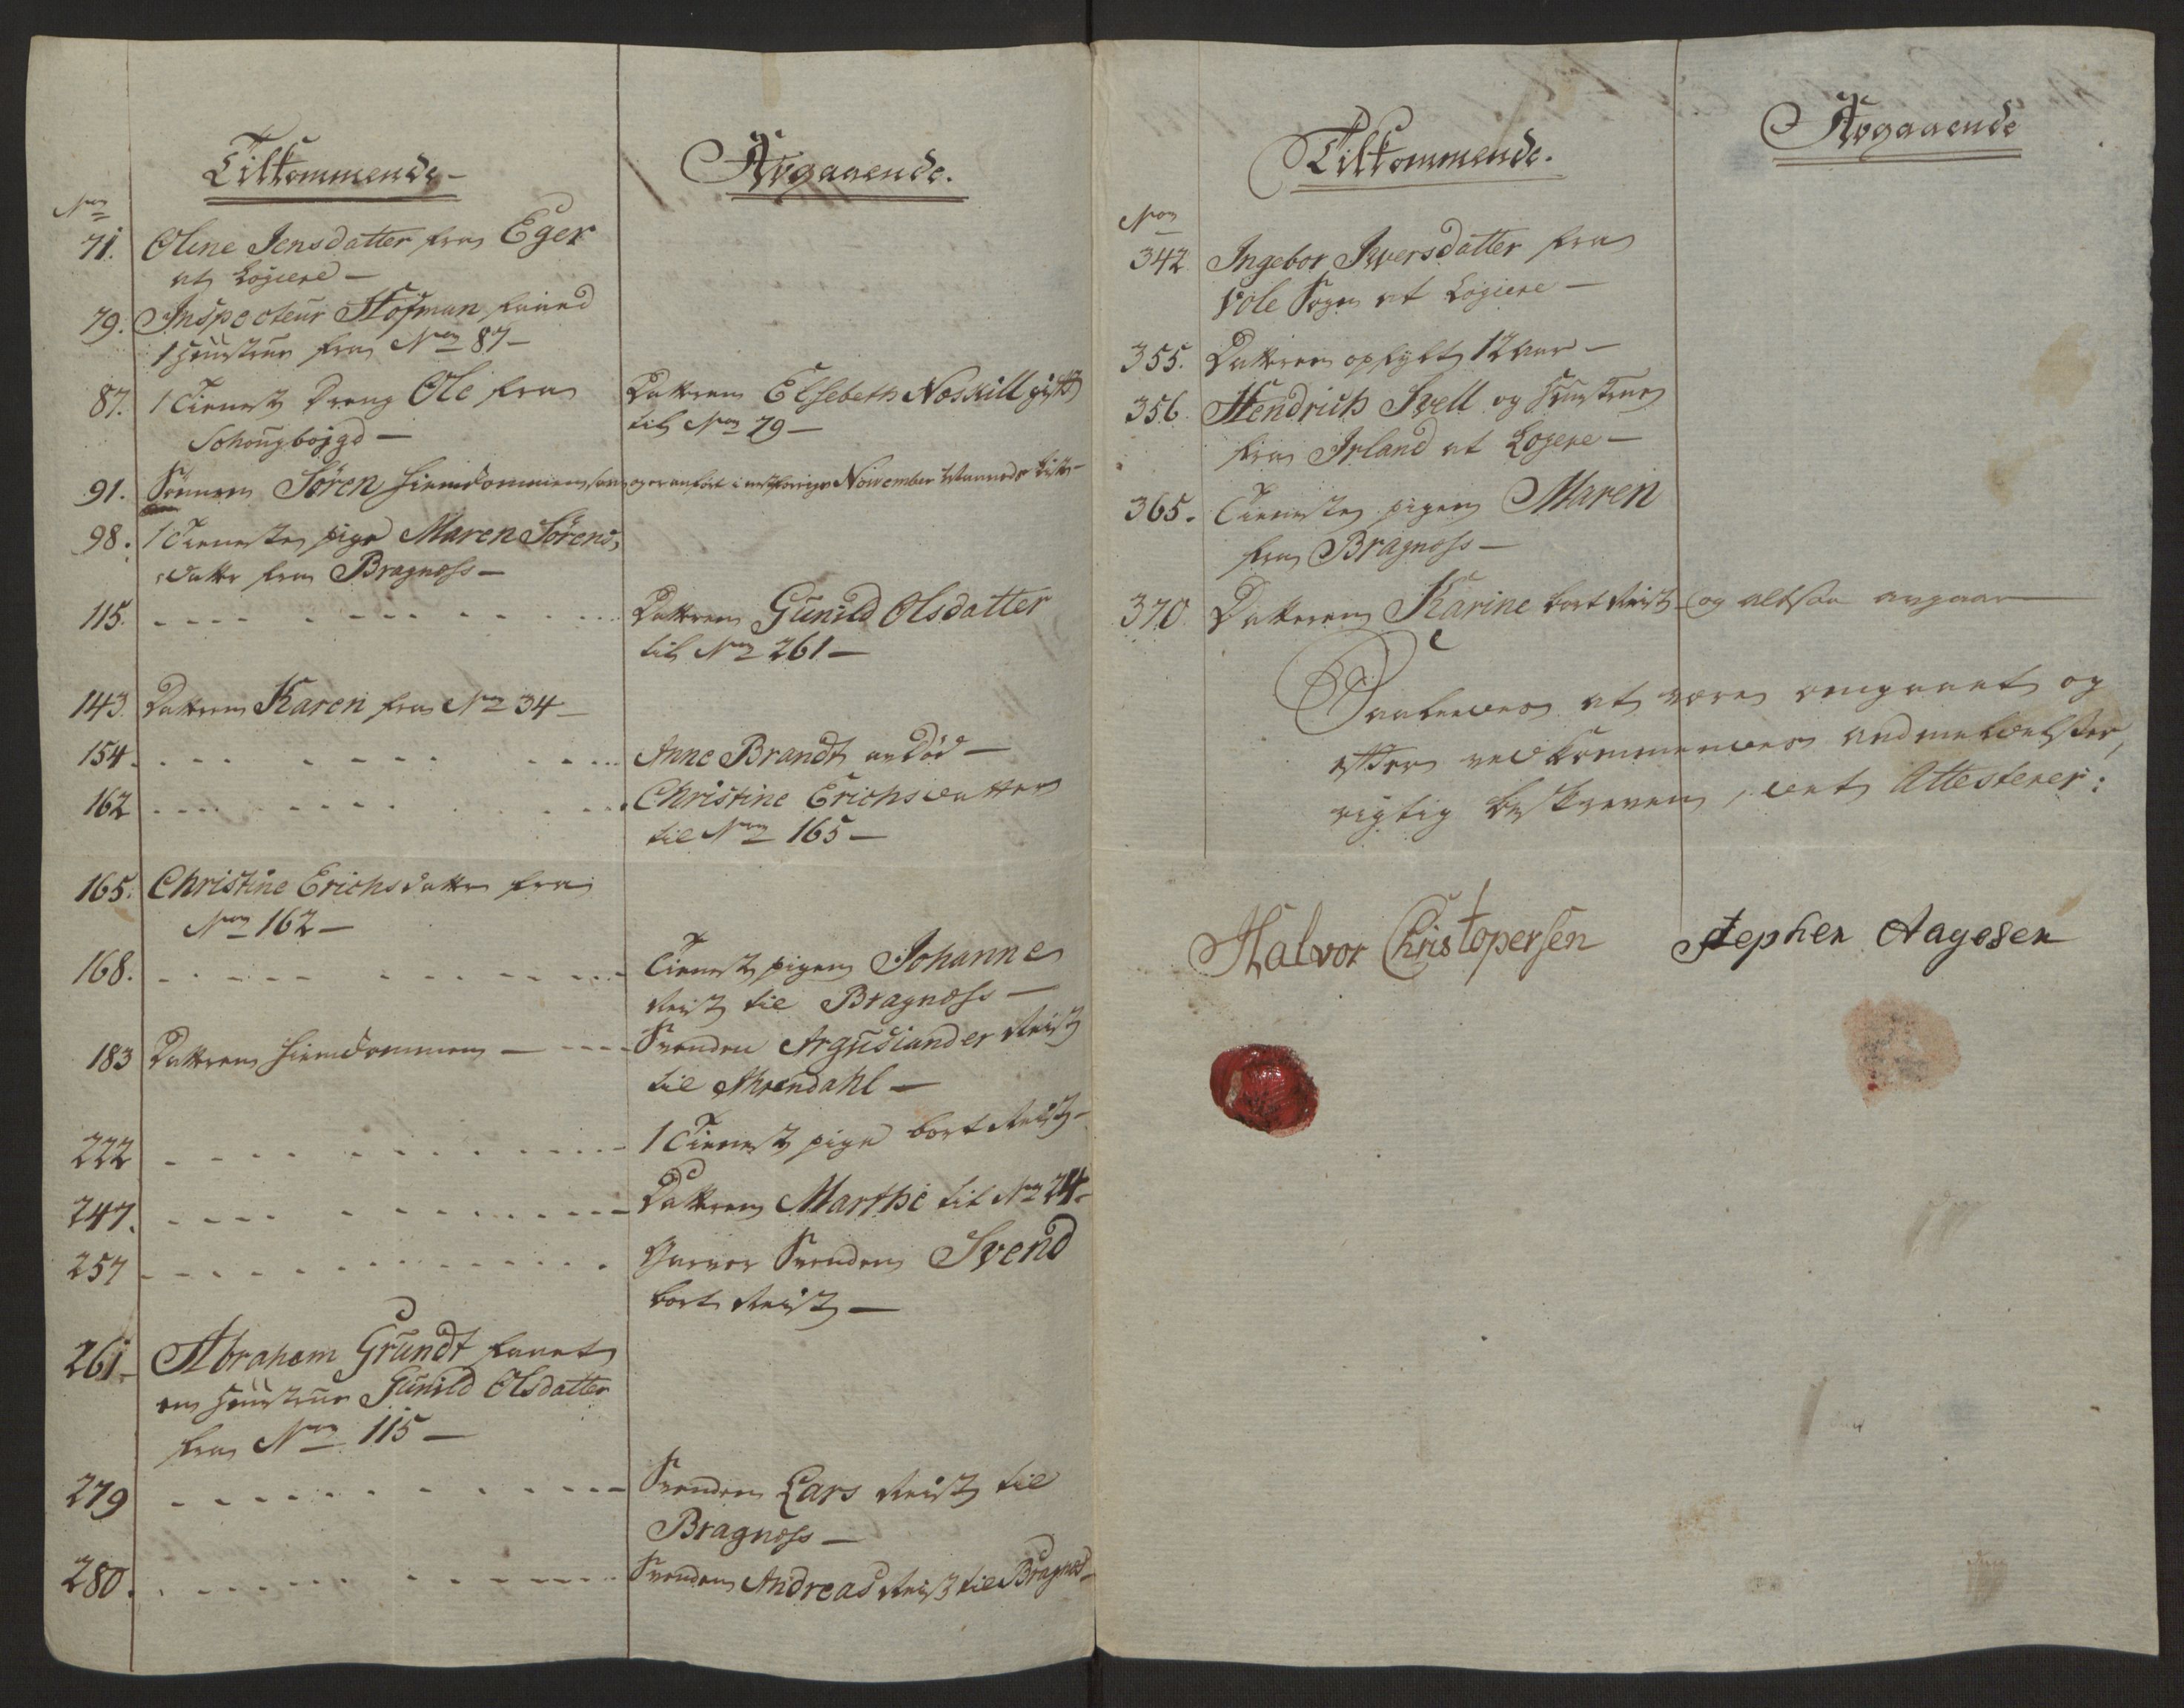 Tilkommende -
Avgaaende.
No
71. Oline Jensdatter fra Eger
at Logiere -
79. Inspecteur Hofman faaed
1 Hüüstrue fra No 87 -
87. 1 Tieneste Dreng Ole fra
Schougbøygd -
Datteren Elsebeth Noskill gift
til No 79 -
91. Sönnen Sören hiemkommen som og er anfört i nestforrige November Maaneds Liste -
98. 1 Tieneste pige Maren Sörens,
datter fra Bragness -
115. Datteren Gunild Olsdatter
til No 261 -
143. Datteren Karen fra No 34 -
154. Anne Brandt er Död -
162 Christine Erichsdatter
til No 165 -
165. Christine Erichsdatter fra
No 162 -
168. Tieneste pigen Johanne
Reist til Bragness -
183 Datteren hiemkommen - Svenden Argusiander Reist
til Ahrendahl -
222 1 Tieneste pige bort Reist -
247. Datteren Marthe til No 24 -
257 Garver Svenden Svend
bort Reist -
261 Abraham Grundt faaet
en Hüüstrue Gunild Olsdatter
fra No 115 -
279 Svenden Lars Reist til
Bragness -
280. Svenden Andreas Reist til Bragnes -
Tilkommende.
Avgaaende
No
342 Ingebor Iversdatter fra
Vole Sogn at Logiere -
355. Datteren opfylt 12 Aar -
356. Hendrich Svell og Hüstrue
fra Irland at Logere -
365. Tieneste pigen Maren
fra Bragness -
370. Datteren Karine bort Reist - og altsaa avgaar
Saaledes at være omgaaet og
efter vedkommendes Andmeldelser,
rigtig beskreven, det Attesterer:
Halvor Christopersen
Stephen Aagesen